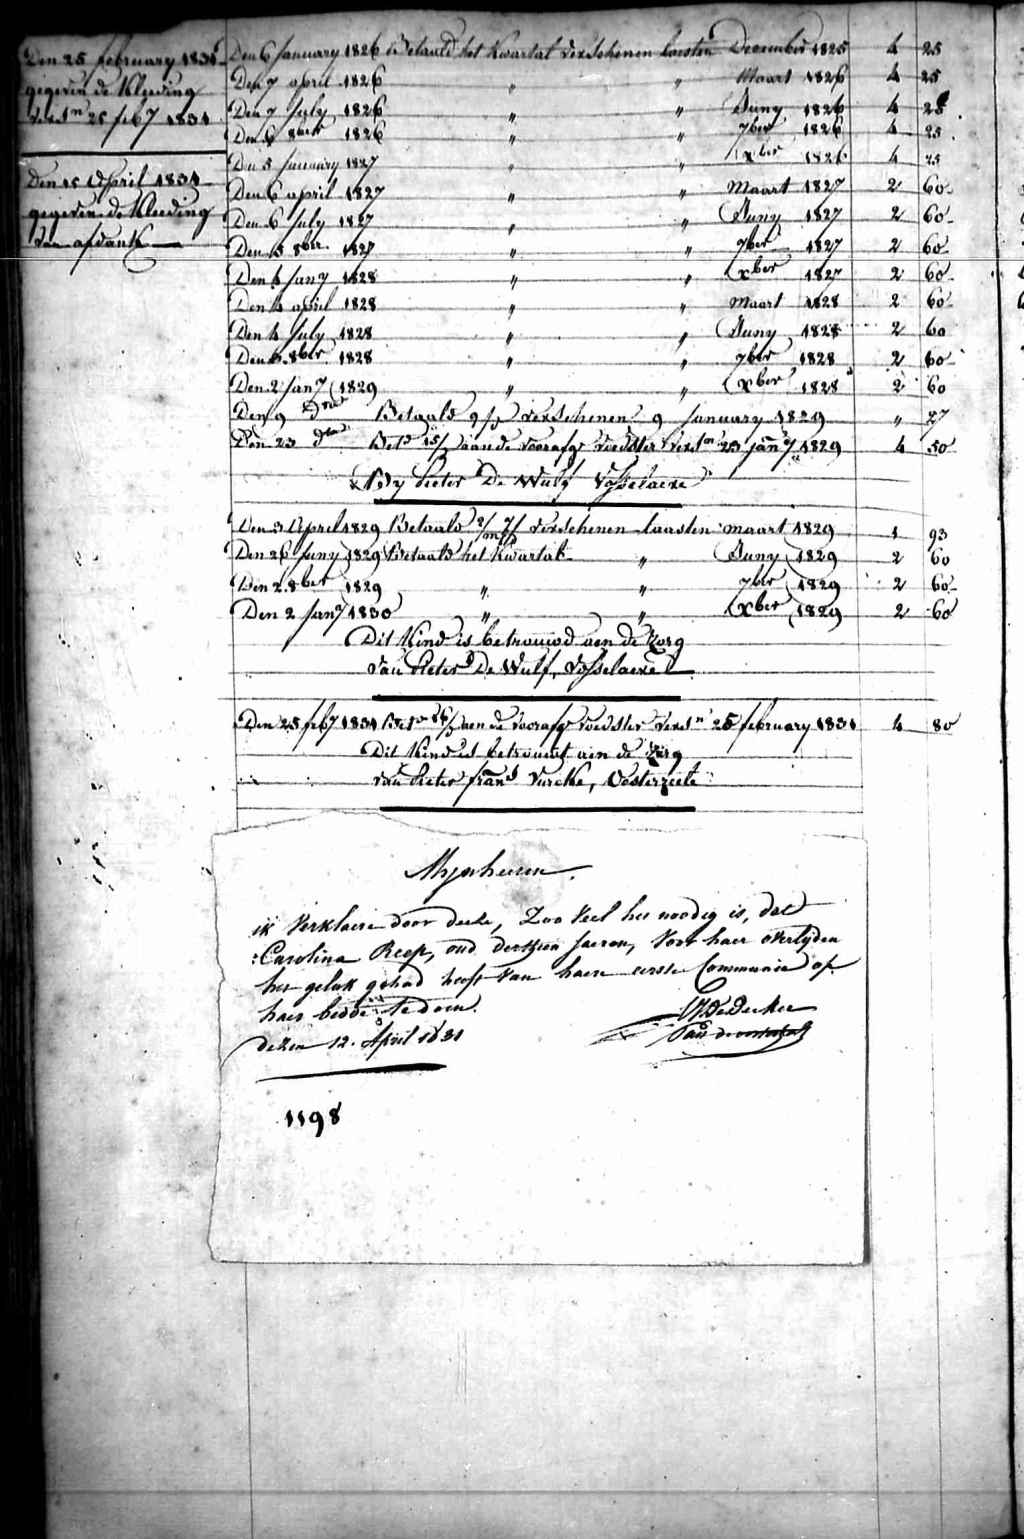 Den 25 february 1831
gegeven de Kleeding
25 feb7 1831
Den 15 April 1831
gegeven de Kleeding
van afdank
Den 6 January 1826 Betaald het Kwartal verschenen laesten December 1825 4 25
Den 7 april 1826 " " Maart 1826 4 25
Den 7 July 1826 " " Juny 1826 4 25
Den 6 8ber 1826 " " 7ber 1826 4 25
Den 5 January 1827 " " xber 1826 4 25
Den 6 april 1827 " " Maart 1827 2 60
Den 6 July 1827 " " Juny 1827 2 60
Den 5 8ber 1827 " " 7ber 1827 2 60
Den 4 Jany 1828 " " xber 1827 2 60
Den 4 april 1828 " " Maart 1828 2 60
Den 4 July 1828 " " Juny 1828 2 60
Den 8ber 1828 " " 7ber 1828 2 60
Den 2 Jany 1829 " " xber 1828 2 60
Den 9 dito Betaald verschenen 9 January 1829 " 27
Den 23 dto Bet. aan de voorafg voedster verst 23 jany 1829 4 50
By Pieter De Wulf Vosselaere
Den 3 April 1829 Betaald verschenen laasten maart 1829 1 93
Den 26 Juny 1829 Betaald het Kwartal " Juny 1829 2 60
Den 2 8ber 1829 " " 7ber 1829 2 60
Den 2 Jany 1830 " " xber 1829 2 60
Dit Kind is betrouwd aen de Zorg
van Pieter De Wulf, Vosselaere
Den 25 feb7 1831 Bet aen de voorafg voedster verst 25 february 1831 4 80
Dit Kind is betrouwt aen de Zorg
van Pieter frans Vurcke, Oosterzeele
Mynheeren
ik Verklaere door deeze, Zoo Veel het noodig is, dat
Carolina Reep, oud derthien Jaeren, Voor haer overlyden
het geluk gehad heeft van haere eerste Communie op
haer bedde te doen.
dezen 12. April 1831
De Decker
1198